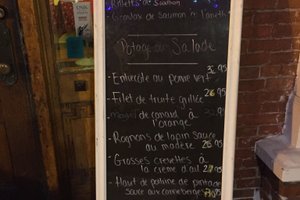 - Rillettes de saumon
- Gravlax de saumon à l'aneth
Potage ou Salade
- Entrecôte au poivre vert 32.95
- Filet de truite grillée 26.95
- Magret de canard à l'orange
- Rognons de lapin sauce au madère 26.95
- Grosses crevettes à la crème d'ail 29.95
- Haut de poitrine de pintade sauce aux canneberges